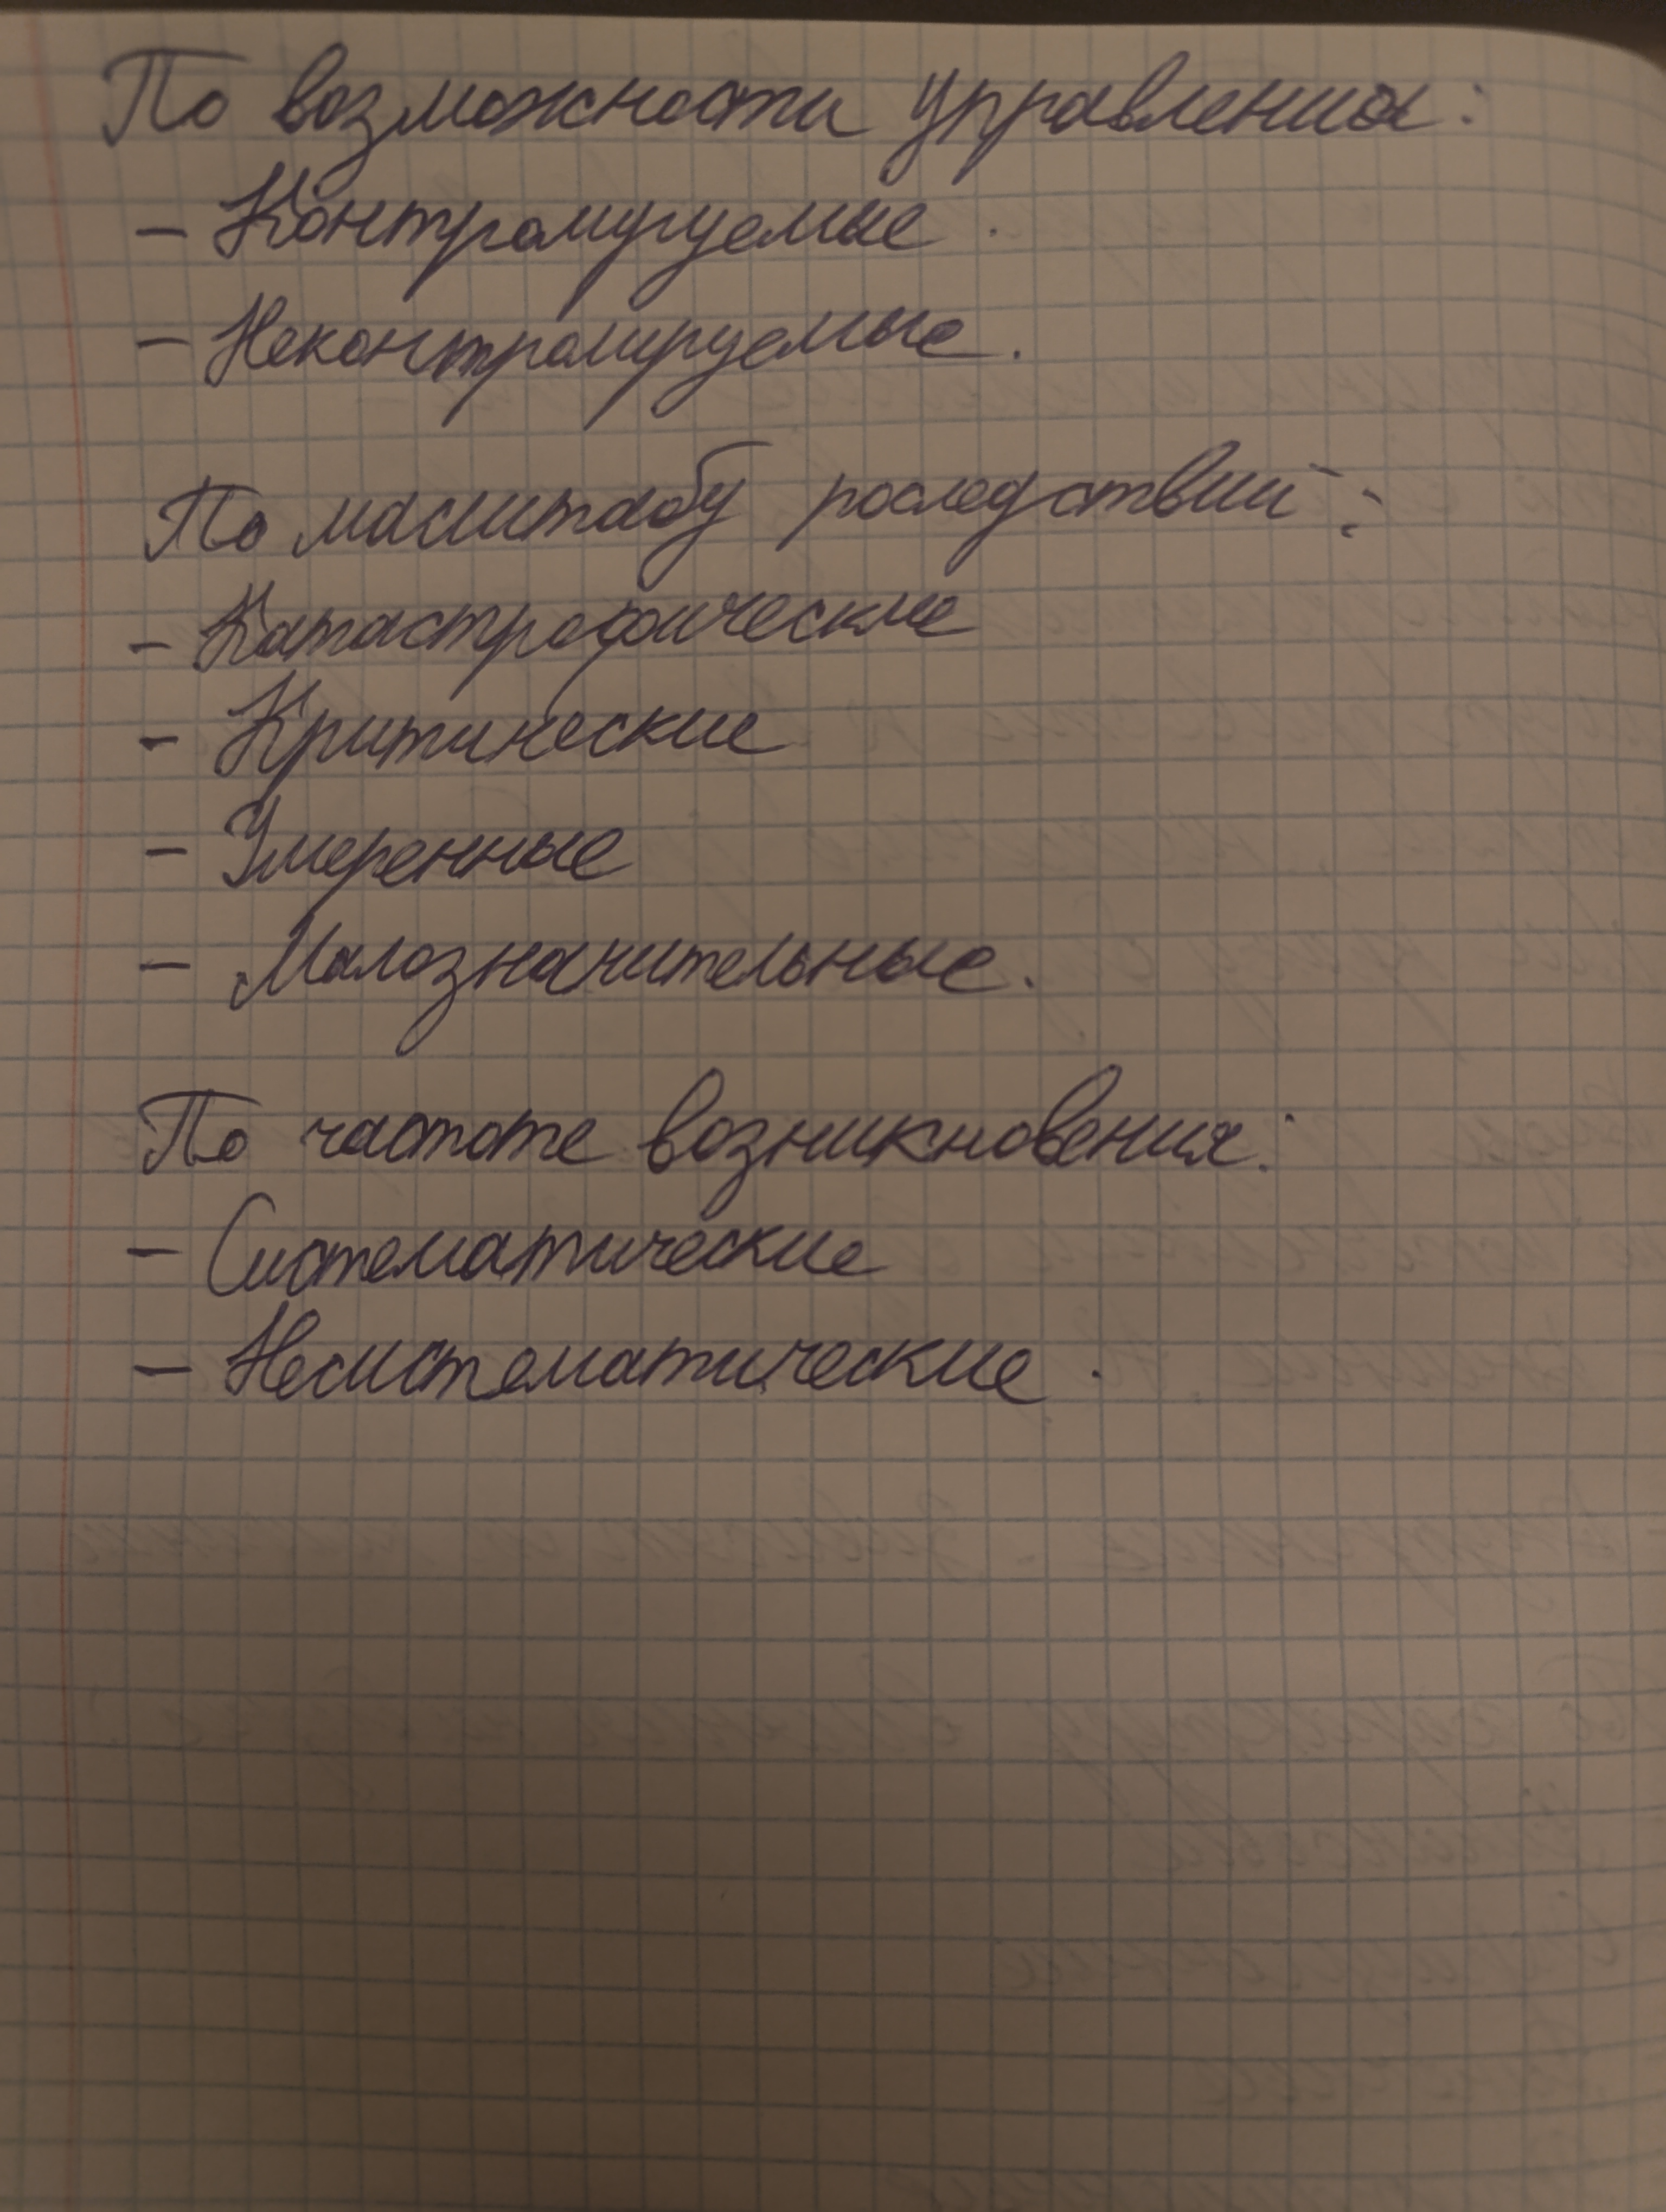 По возможности управления:
- Контролируемые.
- Неконтролируемые.
По масштабу последствий:
- Катастрофические
- Критические
- Умеренные
- Малозначительные.
По частоте возникновения:
- Систематические
- Несистематические.